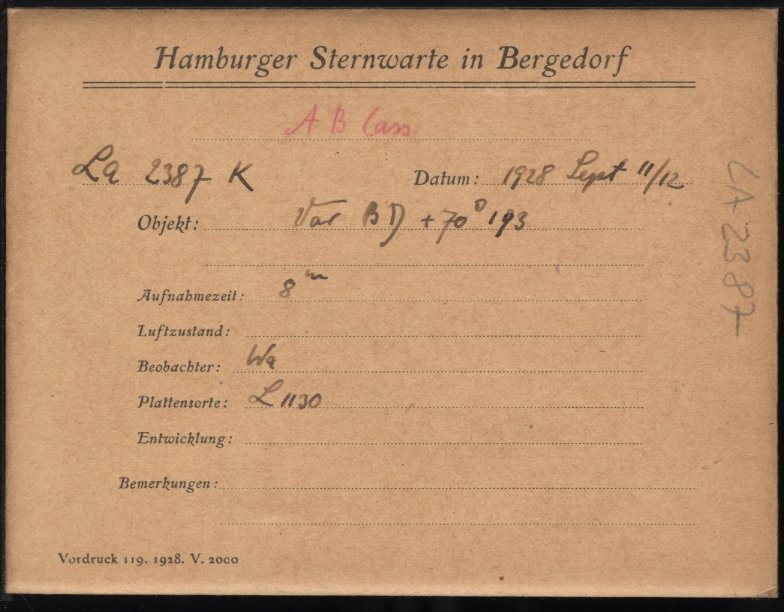 Hamburger Sternwarte in Bergedorf
A B Cass
La 2387 K Datum: 1928 Sept 11/12
Objekt: Var BD +70° 193
Aufnahmezeit: 8ᵐ
Luftzustand:
Beobachter: Wa
Plattensorte: L 1130
Entwicklung:
Bemerkungen:
Vordruck 119. 1928. V. 2000
LA 2387